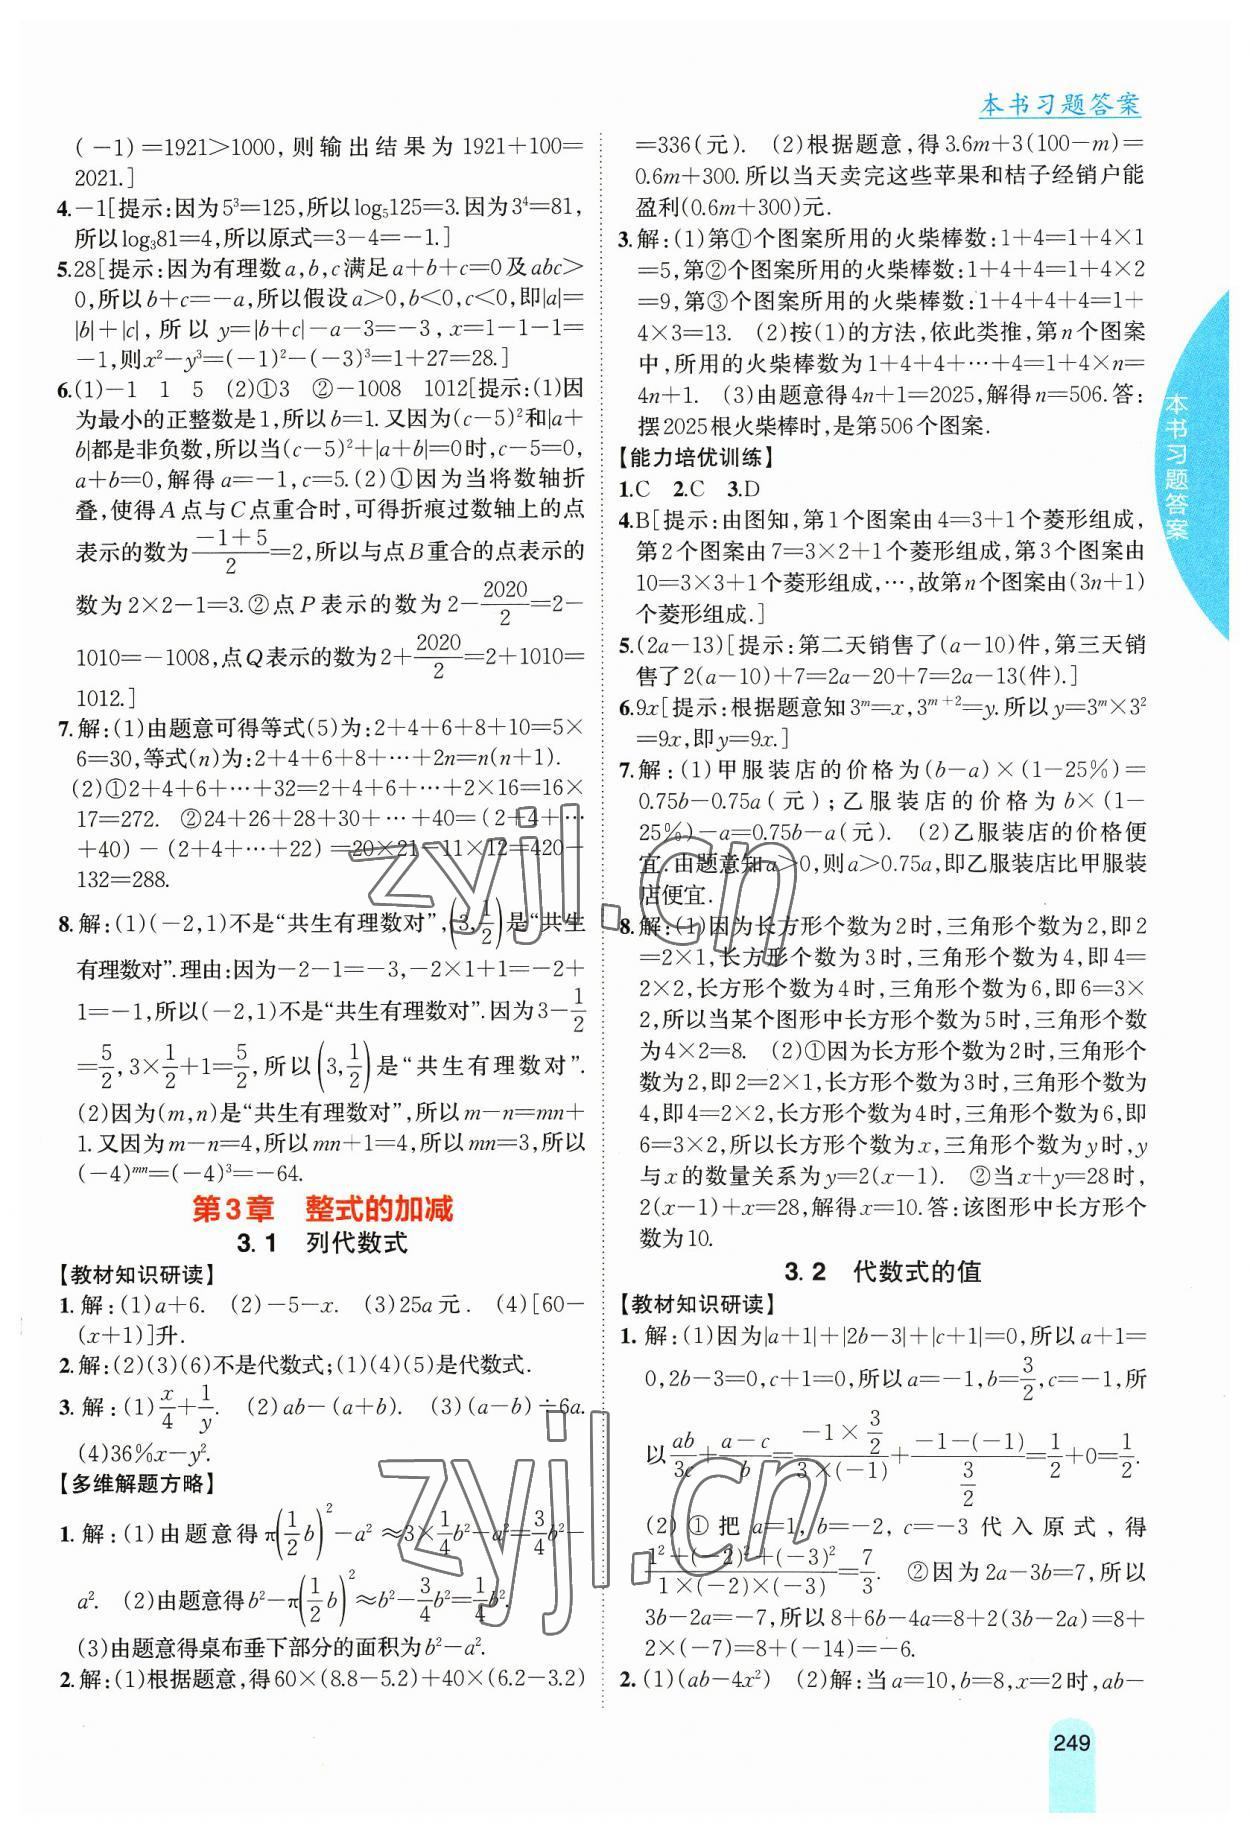 本书习题答案
(-1)=1921>1000,则输出结果为1921+100=
2021.]
4.-1[提示:因为5³=125,所以log₅125=3.因为3⁴=81,
所以log₃81=4,所以原式=3-4=-1.]
5.28[提示:因为有理数a,b,c满足a+b+c=0及abc>
0,所以b+c=-a,所以假设a>0,b<0,c<0,即|a|=
|b|+|c|,所以y=|b+c|-a-3=-3,x=1-1-1=
-1,则x²-y³=(-1)²-(-3)³=1+27=28.]
6.(1)-1 1 5 (2)①3 ②-1008 1012[提示:(1)因
为最小的正整数是1,所以b=1.又因为(c-5)²和|a+
b|都是非负数,所以当(c-5)²+|a+b|=0时,c-5=0,
a+b=0,解得a=-1,c=5.(2)①因为当将数轴折
叠,使得A点与C点重合时,可得折痕过数轴上的点
表示的数为(-1+5)/2=2,所以与点B重合的点表示的
数为2×2-1=3.②点P表示的数为2-2020/2=2-
1010=-1008,点Q表示的数为2+2020/2=2+1010=
1012.]
7.解:(1)由题意可得等式(5)为:2+4+6+8+10=5×
6=30,等式(n)为:2+4+6+8+⋯+2n=n(n+1).
(2)①2+4+6+⋯+32=2+4+6+⋯+2×16=16×
17=272. ②24+26+28+30+⋯+40=(2+4+⋯
+40)-(2+4+⋯+22)=20×21-11×12=420-
132=288.
8.解:(1)(-2,1)不是“共生有理数对”,(3,1/2)是“共生
有理数对”.理由:因为-2-1=-3,-2×1+1=-2+
1=-1,所以(-2,1)不是“共生有理数对”.因为3-1/2
=5/2,3×1/2+1=5/2,所以(3,1/2)是“共生有理数对”.
(2)因为(m,n)是“共生有理数对”,所以m-n=mn+
1.又因为m-n=4,所以mn+1=4,所以mn=3,所以
(-4)^mn=(-4)³=-64.
第3章 整式的加减
3.1 列代数式
【教材知识研读】
1.解:(1)a+6. (2)-5-x. (3)25a元. (4)[60-
(x+1)]升.
2.解:(2)(3)(6)不是代数式;(1)(4)(5)是代数式.
3.解:(1)x/4+1/y. (2)ab-(a+b). (3)(a-b)÷6a.
(4)36%x-y².
【多维解题方略】
1.解:(1)由题意得π(1/2b)²-a²≈3×1/4b²-a²=3/4b²-
a². (2)由题意得b²-π(1/2b)²≈b²-3/4b²=1/4b².
(3)由题意得桌布垂下部分的面积为b²-a².
2.解:(1)根据题意,得60×(8.8-5.2)+40×(6.2-3.2)
=336(元). (2)根据题意,得3.6m+3(100-m)=
0.6m+300.所以当天卖完这些苹果和桔子经销户能
盈利(0.6m+300)元.
3.解:(1)第①个图案所用的火柴棒数:1+4=1+4×1
=5,第②个图案所用的火柴棒数:1+4+4=1+4×2
=9,第③个图案所用的火柴棒数:1+4+4+4=1+
4×3=13. (2)按(1)的方法,依此类推,第n个图案
中,所用的火柴棒数为1+4+4+⋯+4=1+4×n=
4n+1. (3)由题意得4n+1=2025,解得n=506.答:
摆2025根火柴棒时,是第506个图案.
【能力培优训练】
1.C 2.C 3.D
4.B[提示:由图知,第1个图案由4=3+1个菱形组成,
第2个图案由7=3×2+1个菱形组成,第3个图案由
10=3×3+1个菱形组成,⋯,故第n个图案由(3n+1)
个菱形组成.]
5.(2a-13)[提示:第二天销售了(a-10)件,第三天销
售了2(a-10)+7=2a-20+7=2a-13(件).]
6.9x[提示:根据题意知3^m=x,3^(m+2)=y.所以y=3^m×3²
=9x,即y=9x.]
7.解:(1)甲服装店的价格为(b-a)×(1-25%)=
0.75b-0.75a(元);乙服装店的价格为b×(1-
25%)-a=0.75b-a(元). (2)乙服装店的价格便
宜.由题意知a>0,则a>0.75a,即乙服装店比甲服装
店便宜.
8.解:(1)因为长方形个数为2时,三角形个数为2,即2
=2×1,长方形个数为3时,三角形个数为4,即4=
2×2,长方形个数为4时,三角形个数为6,即6=3×
2,所以当某个图形中长方形个数为5时,三角形个数
为4×2=8. (2)①因为长方形个数为2时,三角形个
数为2,即2=2×1,长方形个数为3时,三角形个数为
4,即4=2×2,长方形个数为4时,三角形个数为6,即
6=3×2,所以长方形个数为x,三角形个数为y时,y
与x的数量关系为y=2(x-1). ②当x+y=28时,
2(x-1)+x=28,解得x=10.答:该图形中长方形个
数为10.
3.2 代数式的值
【教材知识研读】
1.解:(1)因为|a+1|+|2b-3|+|c+1|=0,所以a+1=
0,2b-3=0,c+1=0,所以a=-1,b=3/2,c=-1,所
以ab/3c+(a-c)/b=(-1×3/2)/(3×(-1))+(-1-(-1))/(3/2)=1/2+0=1/2.
(2)①把a=1,b=-2,c=-3代入原式,得
(1²+(-2)²+(-3)²)/(1×(-2)×(-3))=7/3. ②因为2a-3b=7,所以
3b-2a=-7,所以8+6b-4a=8+2(3b-2a)=8+
2×(-7)=8+(-14)=-6.
2.(1)(ab-4x²) (2)解:当a=10,b=8,x=2时,ab-
本书习题答案
249
zyjl.cn
zyjl.cn